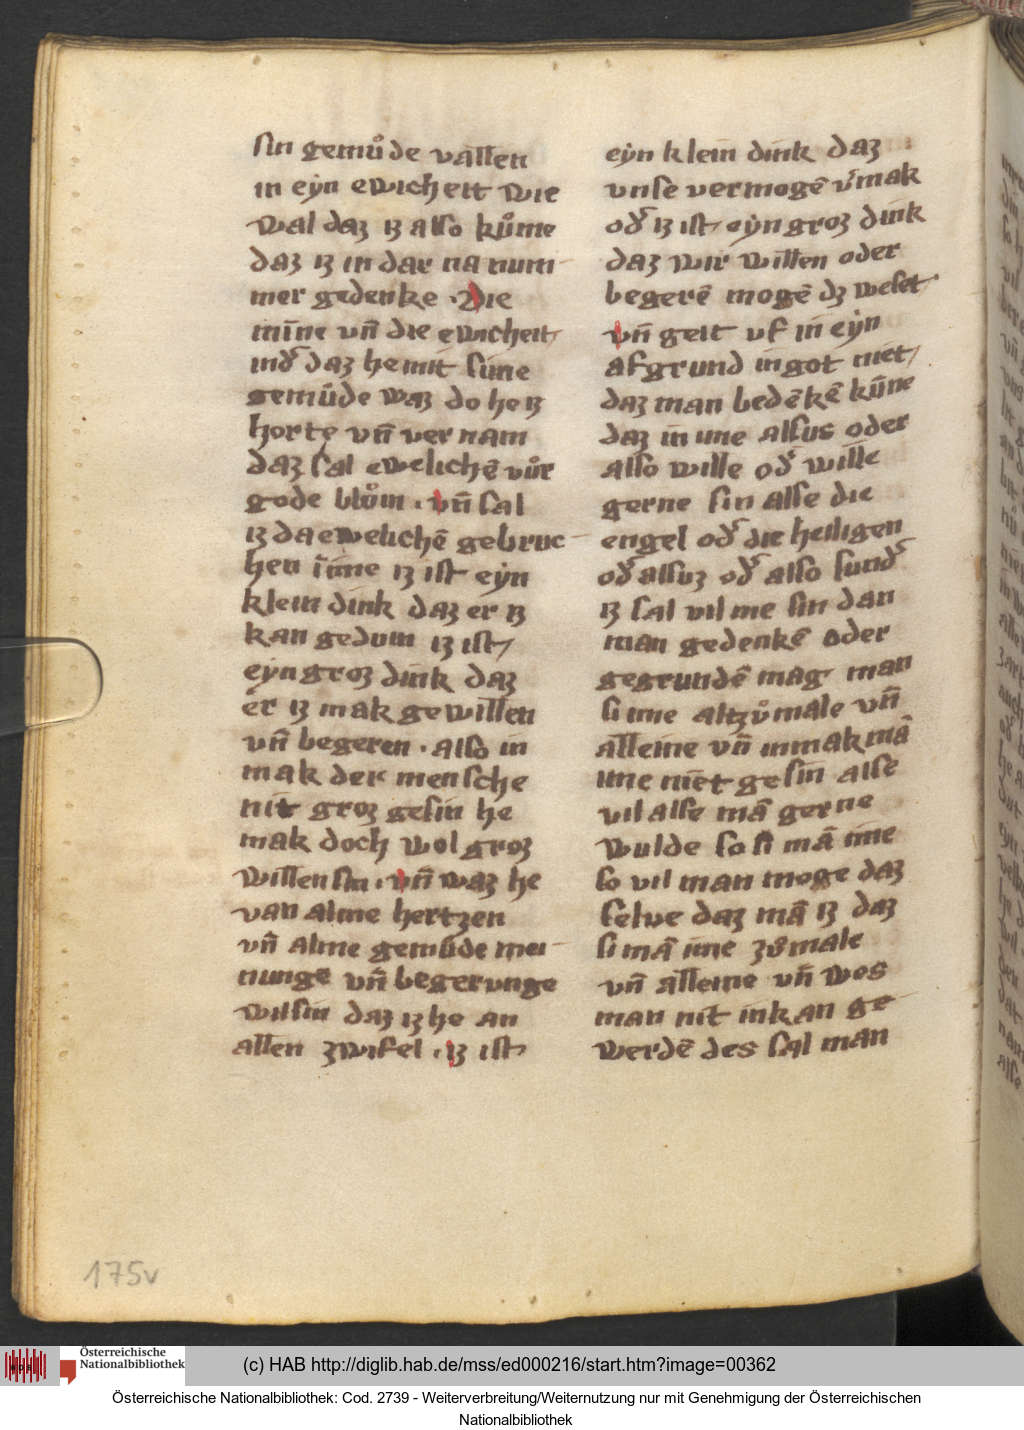 sin gemuͦde vallen
in eyn ewicheit wie
wal daz iz also kuͦme
daz iz in dar na num
mer gedenke · Die
mīne vn̄ die ewicheit
ind᷎ daz he mit sime
gemuͦde waz do he iz
horte vn̄ ver nam
daz sal ewelichē vuͦr
gode bluͦin · vn̄ sal
iz da ewelichē gebruc
hen īme iz ist eyn
klein dink daz er iz
kan geduin iz ist
eyn groz dink daz
er iz mak gewillen
vn̄ begeren · also in
mak der mensche
nit groz gesin he
mak doch wol groz
willen sin · vn̄ waz he
van alme hertzen
vn̄ alme gemude mei
nunge vn̄ begerunge
wil sin daz iz he an
allen zwifel · iz ist
eyn klein dink daz
vnse vermogē v᷎mak
od᷎ iz ist eyn groz dink
daz wir willen oder
begerē mogē dz weset
vn̄ geit uf in eyn
afgrund in got niet
daz man bedēkē kūne
daz in ime alsus oder
also wille od᷎ wille
gerne sin alse die
engel od᷎ die heiligen
od᷎ alsuz od᷎ also sund᷎
iz sal vil me sin dan
man gedenkē oder
gegrundē mag man
si ime altzuͦ male vn̄
alleine vn̄ in mak mā
ime niet gesin alse
vil alse mā gerne
wulde so si mā ime
so vil man moge daz
selue daz mā iz daz
si mā ime zuͦ male
vn̄ alleine vn̄ wos
man nit in kan ge
werdē des sal man
175v
Österreichische
Nationalbibliothek
(c) HAB http://diglib.hab.de/mss/ed000216/start.htm?image=00362
Österreichische Nationalbibliothek: Cod. 2739 - Weiterverbreitung/Weiternutzung nur mit Genehmigung der Österreichischen
Nationalbibliothek